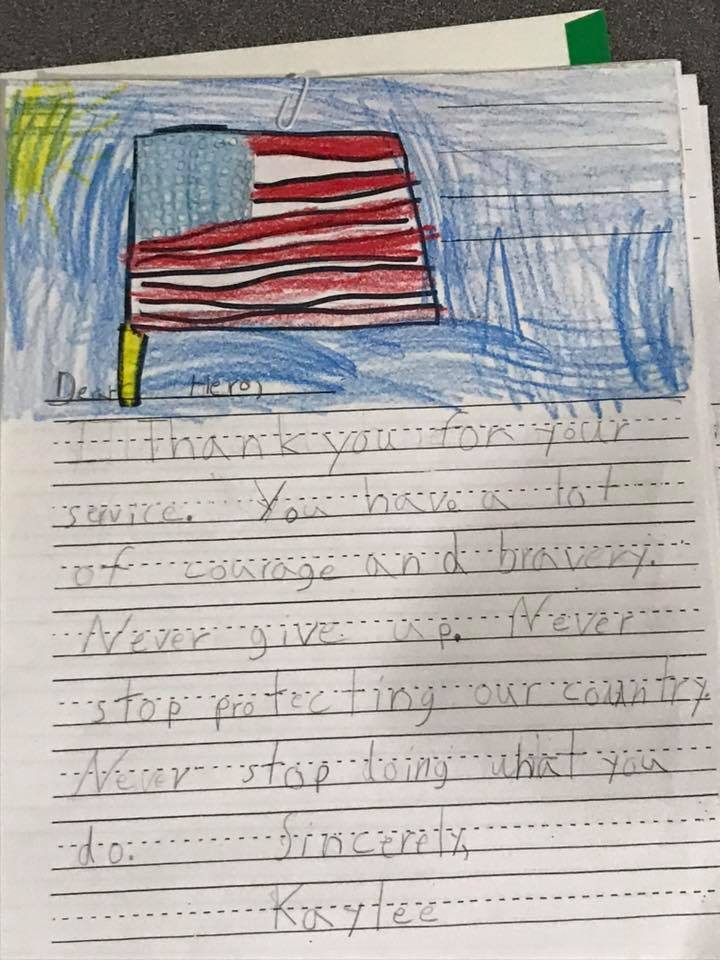 Dear Hero,
I Thank you for your
service. You have a lot
of courage and bravery.
Never give up. Never
stop protecting our country.
Never stop doing what you
do. Sincerely,
Kaylee